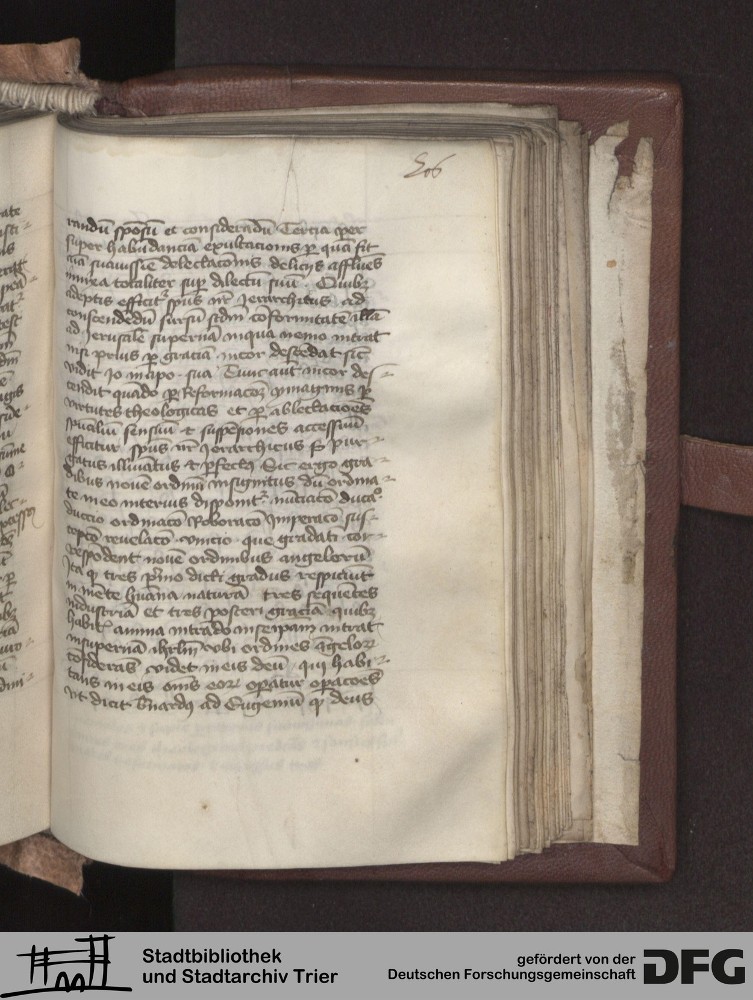 206
randū sposū et consideradū Tercia per
super habūdanciā exultacionis ꝑ quā fit
aīa suauissīe delectacōnis delicijs affluēs
innixa totaliter suꝑ dilectū suū Quibꝫ
adeptis efficitʳ spūs nr̄ Jerarchitus ad
conscendēdū sursū scdm̄ cōformitatē illā
ad Jerusalē supernā inquā nemo intrat
nisi prius ꝑ graciā incor descēdat sic
vidit Jo in apo. sua Tunc aūt incor des-
cendit quādo ꝑ Reformacoēꝫ ymaginis ꝑ
virtutes theologicas et ꝑ ablectacioēs
spūaliū sensuū et suspēsiones accessiuū
efficitur spūs nr̄ Jerarchicus sꝫ pur-
gatus illuīatus et ꝑfectus Sic ergo gra-
dibus nouē ordinū insignitus dū ordina-
te in eo interius disponitʳ nūciatō ducaᵒ
ductio ordinacō Roboracō Imperacō sus-
ceptō reuelatō vnictio que gradati cor-
respōdent nouē ordinibus angelorū
Ita ꝙ tres p̄mo dicti gradus respiciūt
in mēte hūana naturā tres sequētes
industriā et tres posteri graciā quibꝫ
habitꝭ anima intrādo inseipam intrat
insupernā ihrlm̄ vbi ordines āgeloꝝ
cōsiderās videt in eis deū qui habi-
tans in eis om̄s eoꝝ oꝑatur oꝑacoēs
vt dicit b̄nardꝰ ad Eugeniū ꝙ deus
Stadtbibliothek
und Stadtarchiv Trier
gefördert von der
Deutschen Forschungsgemeinschaft
DFG